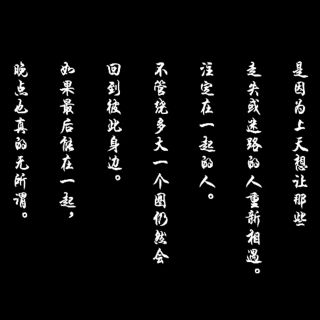 是因为上天想让那些
走失或迷路的人重新相遇。
注定在一起的人。
不管绕多大一个圈仍然会
回到彼此身边。
如果最后能在一起，
晚点也真的无所谓。